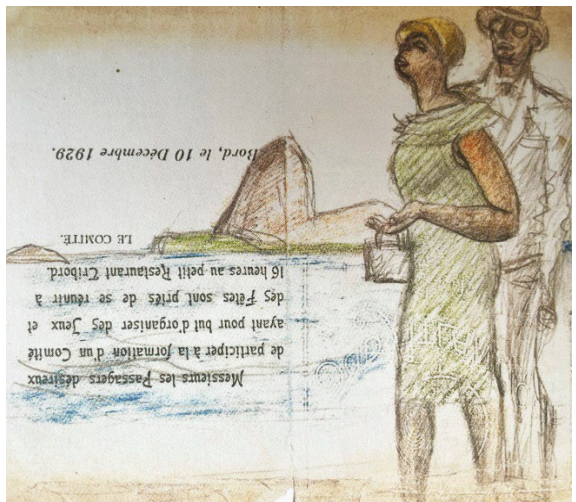 Messieurs les Passagers désireux
de participer à la formation d'un Comité
ayant pour but d'organiser des Jeux et
des Fêtes sont priés de se réunir à
16 heures au petit Restaurant Tribord.
LE COMITÉ.
Bord, le 10 Décembre 1929.